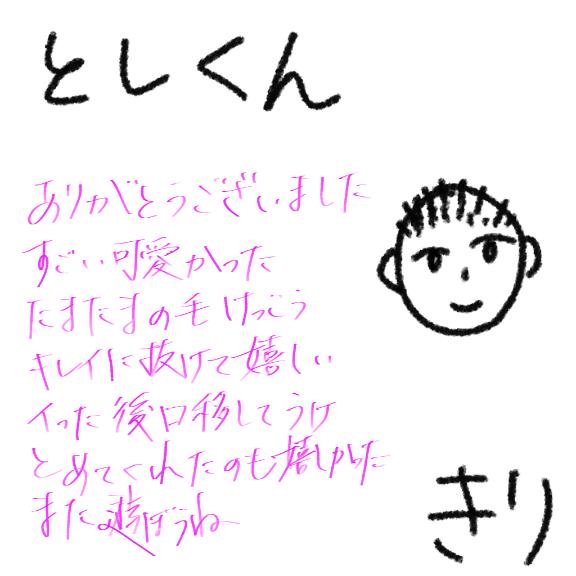 としくん
ありがとうございました
すごい可愛かった
たまたまの毛けっこう
キレイに抜けて嬉しい
イった後口移してうけ
とめてくれたのも嬉しかった
また遊ぼうね
きり